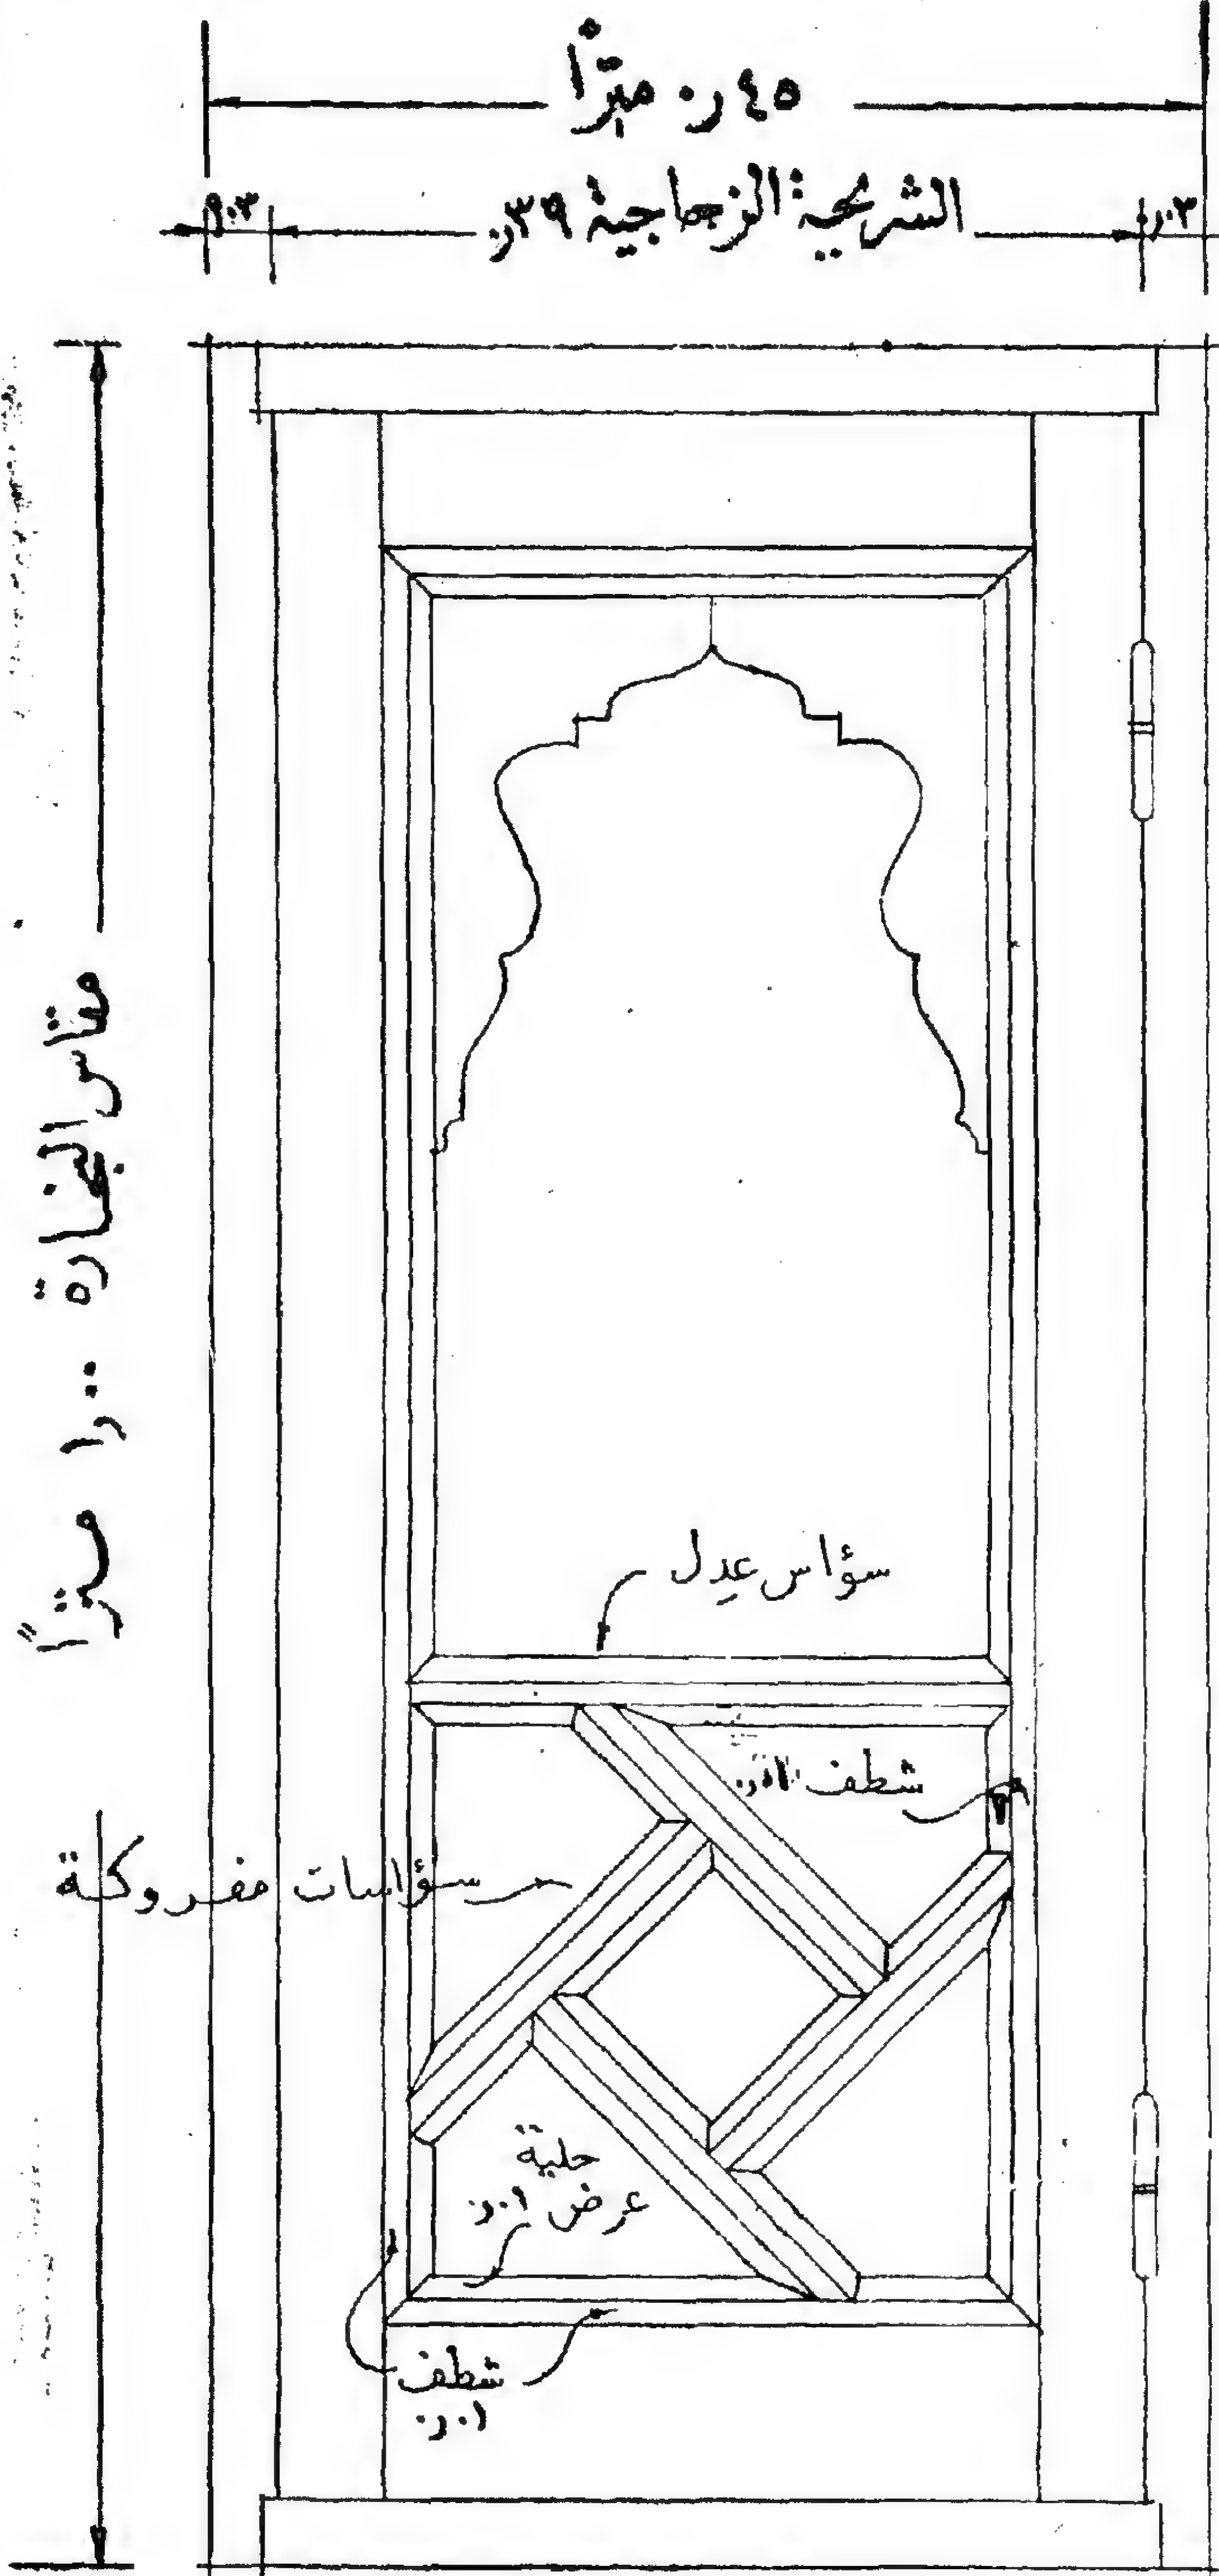 ٤٥ ر. مترًا
٠٣ر.
الشريحة الزجاجية ٣٩ر.
٠٣ر.
مقاس النجارة ٠٠ر١ مترًا
سؤاس عدل
شطف
سؤاسات مفروكة
حلية
عرض ٠١ر.
شطف
٠١ر.